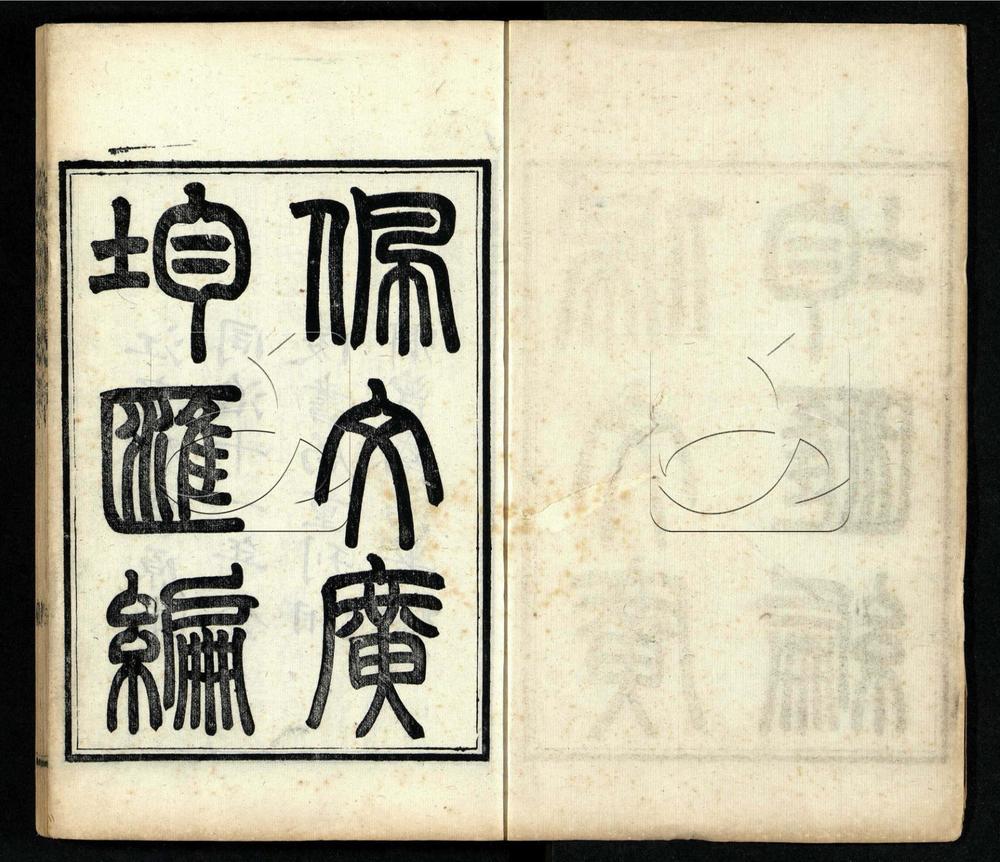 佩文廣
均匯編